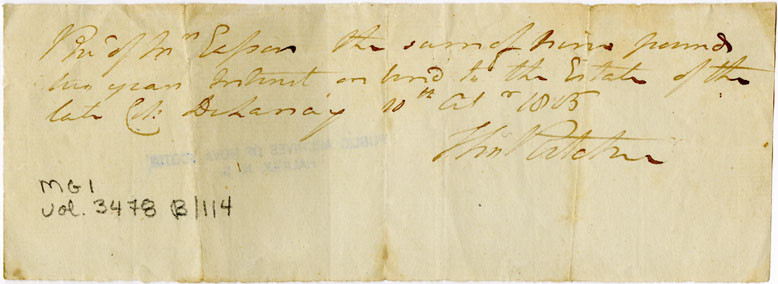 Rec'd of Mr Easson the sum of nine pounds
two years Interest on bond to the Estate of the
late Col: Delancey 10th Octr 1805
Thos Ritchie
PUBLIC ARCHIVES OF NOVA SCOTIA
HALIFAX, N.S.
MG1
Vol. 3478 B/114